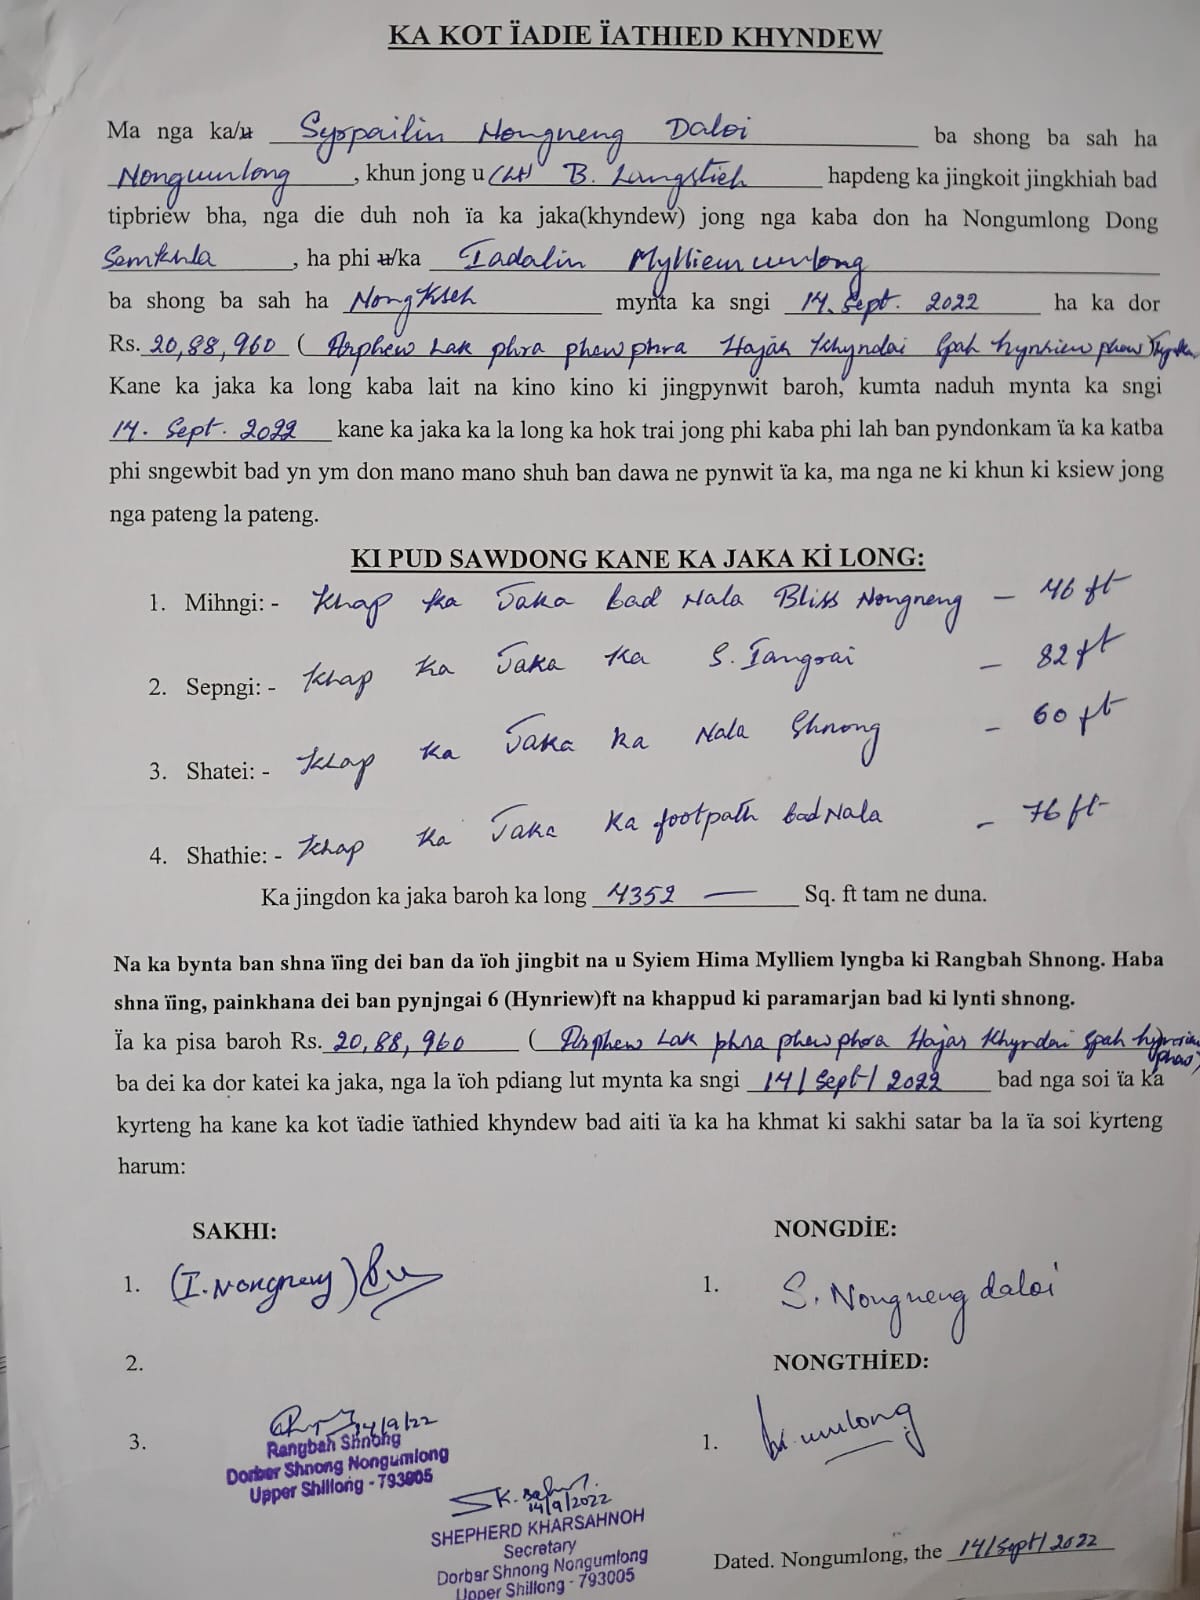 KA KOT ÏADIE ÏATHIED KHYNDEW
Ma nga ka/u Syrpailin Nongneng Daloi ba shong ba sah ha
Nongumlong, khun jong u (Lt) B. Langstieh hapdeng ka jingkoit jingkhiah bad
tipbriew bha, nga die duh noh ïa ka jaka(khyndew) jong nga kaba don ha Nongumlong Dong
Semkhla, ha phi u/ka Iadalin Mylliemumlong
ba shong ba sah ha NongKseh mynta ka sngi 14. Sept. 2022 ha ka dor
Rs. 20,88,960 (Arphew Lak phra phew phra Hajar Khyndai Spah hynriew phew
Kane ka jaka ka long kaba lait na kino kino ki jingpynwit baroh, kumta naduh mynta ka sngi
14. Sept. 2022 kane ka jaka ka la long ka hok trai jong phi kaba phi lah ban pyndonkam ïa ka katba
phi sngewbit bad yn ym don mano mano shuh ban dawa ne pynwit ïa ka, ma nga ne ki khun ki ksiew jong
nga pateng la pateng.
KI PUD SAWDONG KANE KA JAKA Kİ LONG:
1. Mihngi: - Khap ka Jaka bad Nala Bliss Nongneng – 46 ft
2. Sepngi: - Khap Ka Jaka Ka S. Iangrai – 82 ft
3. Shatei: - Khap Ka Jaka ka Nala Shnong – 60 ft
4. Shathie: - Khap Ka Jaka Ka footpath bad Nala – 76 ft
Ka jingdon ka jaka baroh ka long 4352 — Sq. ft tam ne duna.
Na ka bynta ban shna ïing dei ban da ïoh jingbit na u Syiem Hima Mylliem lyngba ki Rangbah Shnong. Haba
shna ïing, painkhana dei ban pynjngai 6 (Hynriew)ft na khappud ki paramarjan bad ki lynti shnong.
Ïa ka pisa baroh Rs. 20,88,960 (Arphew Lak phra phew phra Hajar Khyndai Spah hynriew
phew)
ba dei ka dor katei ka jaka, nga la ïoh pdiang lut mynta ka sngi 14/Sept/2022 bad nga soi ïa ka
kyrteng ha kane ka kot ïadie ïathied khyndew bad aiti ïa ka ha khmat ki sakhi satar ba la ïa soi kyrteng
harum:
SAKHI:
1. (I. Nongneng)
2.
3. 14/9/22
Rangbah Shnong
Dorbar Shnong Nongumlong
Upper Shillong - 793005
14/9/2022
SHEPHERD KHARSAHNOH
Secretary
Dorbar Shnong Nongumlong
Upper Shillong - 793005
NONGDİE:
1. S. Nongneng daloi
NONGTHİED:
1. umlong
Dated. Nongumlong, the 14/Sept/2022